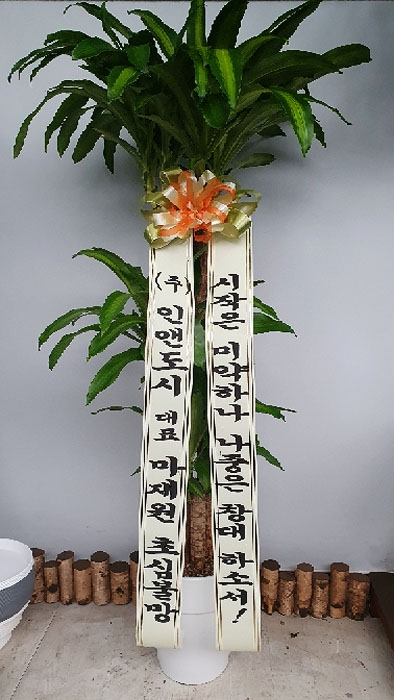 (주) 인앤도시 대표 마재원 초심불망
시작은 미약하나 나중은 창대 하소서!